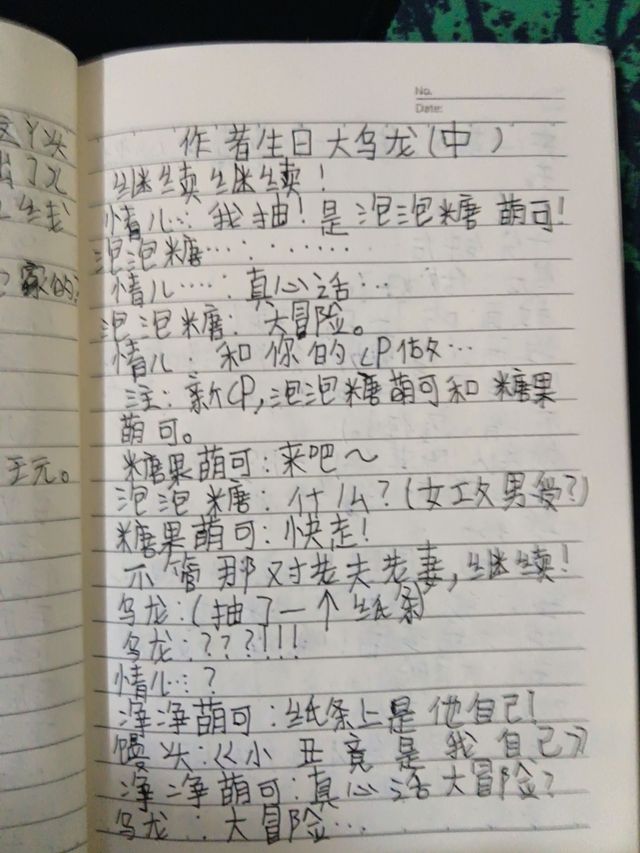 No.
Date:
作者生日大乌龙(中)
继续继续!
情儿:我抽!是泡泡糖萌可!
泡泡糖………
情儿…:真心话…
泡泡糖:大冒险。
情儿:和你的CP做…
注:新CP,泡泡糖萌可和糖果
萌可。
糖果萌可:来吧~
泡泡糖:什么?(女攻男受?)
糖果萌可:快走!
不管那对老夫老妻,继续!
乌龙:(抽了一个纸条)
乌龙:???!!!
情儿:?
净净萌可:纸条上是他自己!
馒头:《小丑竟是我自己》
净净萌可:真心话大冒险?
乌龙:大冒险…
这丫头
豪的
王元。